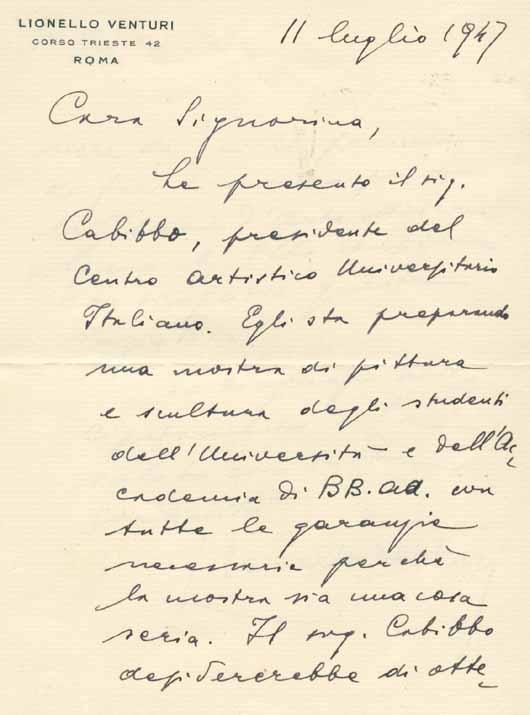 LIONELLO VENTURI
CORSO TRIESTE 42
ROMA
11 luglio 1947
Cara Signorina,
Le presento il sig.
Cabibbo, presidente del
Centro Artistico Universitario
Italiano. Egli sta preparando
una mostra di pittura
e scultura degli studenti
dell'Università e dell'Ac-
cademia di BB.AA. con
tutte le garanzie
necessarie perchè
la mostra sia una cosa
seria. Il sig. Cabibbo
desidererebbe di otte-